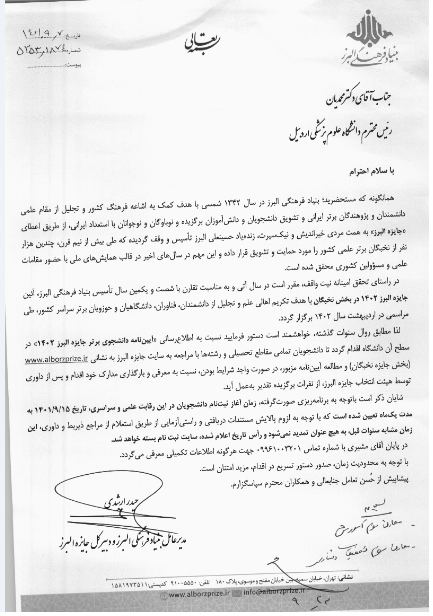 بسمه تعالی
تاریخ:
شماره:
پیوست:
بنیاد فرهنگی البرز
جناب آقای دکتر محمدیان
رئیس محترم دانشگاه علوم پزشکی اردبیل
با سلام احترام
همانگونه که مستحضرید؛ بنیاد فرهنگی البرز در سال ۱۳۴۲ شمسی با هدف کمک به اشاعه فرهنگ کشور و تجلیل از مقام علمی
دانشمندان و پژوهندگان برتر ایرانی و تشویق دانشجویان و دانش‌آموزان برگزیده و نوباوگان و نوجوانان با استعداد ایرانی، از طریق اعطای
«جایزه البرز» به همت مردی خیراندیش و نیک‌سیرت، زنده‌یاد حسینعلی البرز تأسیس و وقف گردیده که طی بیش از نیم قرن، چندین هزار
نفر از نخبگان برتر علمی کشور را مورد حمایت و تشویق قرار داده و این مهم در سال‌های اخیر در قالب همایش‌های ملی با حضور مقامات
علمی و مسؤولین کشوری محقق شده است.
در راستای تحقق امینانه نیت واقف، مقرر است در سال آتی و به مناسبت تقارن با شصت و یکمین سال تأسیس بنیاد فرهنگی البرز، آئین
جایزه البرز ۱۴۰۲ در بخش نخبگان با هدف تکریم اهالی علم و تجلیل از دانشمندان، فناوران، دانشگاهیان و حوزویان برتر سراسر کشور، طی
مراسمی در اردیبهشت سال ۱۴۰۲ برگزار گردد.
لذا مطابق روال سنوات گذشته، خواهشمند است دستور فرمایید نسبت به اطلاع‌رسانی «آیین‌نامه دانشجویی برتر جایزه البرز ۱۴۰۲» در
سطح آن دانشگاه اقدام گردد تا دانشجویان تمامی مقاطع تحصیلی و رشته‌ها با مراجعه به سایت جایزه البرز به نشانی www.alborzprize.ir
(بخش جایزه نخبگان) و مطالعه آیین‌نامه مزبور، در صورت واجد شرایط بودن، نسبت به معرفی و بارگذاری مدارک خود اقدام و پس از داوری
توسط هیئت انتخاب جایزه البرز، از نفرات برگزیده تقدیر به‌عمل آید.
شایان ذکر است باتوجه به برنامه‌ریزی صورت‌گرفته، زمان آغاز ثبت‌نام دانشجویان در این رقابت علمی و سراسری، تاریخ ۱۴۰۱/۹/۱۵ به
مدت یک‌ماه تعیین شده است که با توجه به لزوم پالایش مستندات دریافتی و راستی‌آزمایی از طریق استعلام از مراجع ذیربط و داوری، این
زمان مشابه سنوات قبل، به هیچ عنوان تمدید نمی‌شود و رأس تاریخ اعلام شده، سایت ثبت نام بسته خواهد شد.
در پایان آقای مشیری با شماره تماس ۰۹۹۶۱۰۰۳۲۰۱ جهت هرگونه اطلاعات تکمیلی معرفی می‌گردد.
با توجه به محدودیت زمان، صدور دستور تسریع در اقدام، مزید امتنان است.
پیشاپیش از حُسن تعامل جنابعالی و همکاران محترم سپاسگزارم.
حیدر ارشدی
مدیرعامل بنیاد فرهنگی البرز و دبیر کل جایزه البرز
www.alborzprize.ir info@alborzprize.ir